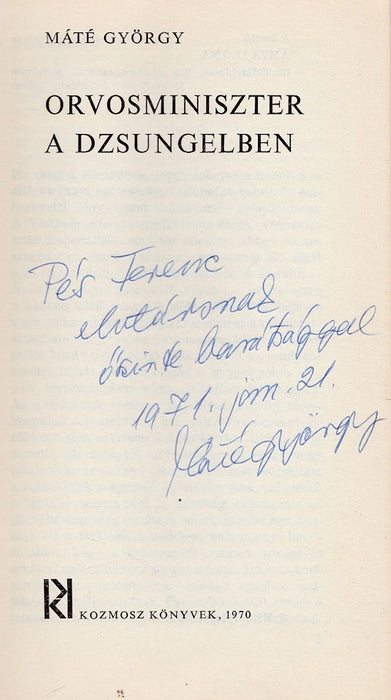 MÁTÉ GYÖRGY
ORVOSMINISZTER
A DZSUNGELBEN
Ferenc
elvtársnak
őszinte barátsággal
1971. jún. 21.
Máté György
KOZMOSZ KÖNYVEK, 1970